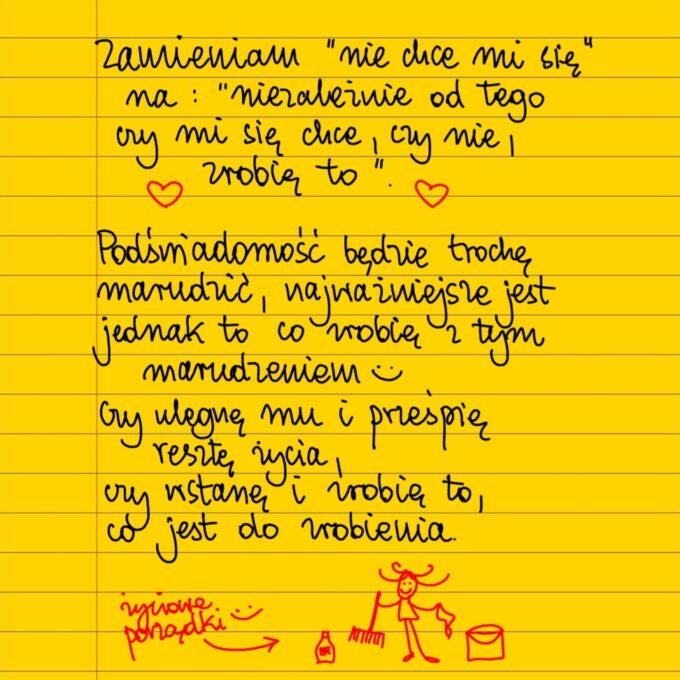 Zamieniam "nie chce mi się"
na: "niezależnie od tego
czy mi się chce, czy nie,
zrobię to".
Podświadomość będzie trochę
marudzić, najważniejsze jest
jednak to co zrobię z tym
marudzeniem
Czy ulęgnę mu i prześpię
resztę życia,
czy wstanę i zrobię to,
co jest do zrobienia.
życiowe
porządki